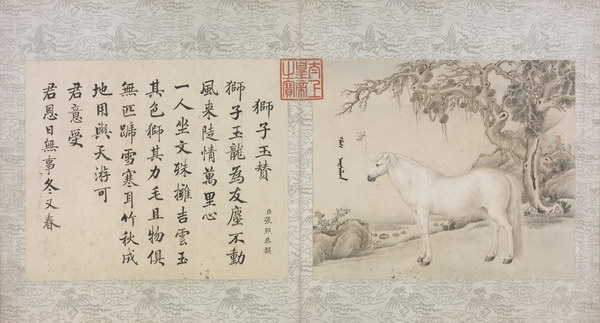 獅子玉贊
臣張照恭撰
獅子玉龍為友塵不動
風來情萬里心
一人坐文殊擁吉雲玉
其色獅其力毛且物俱
無匹蹄雪寒耳竹秋成
地用與天游可
君意受
君恩日無事冬又春
太上皇帝之寶